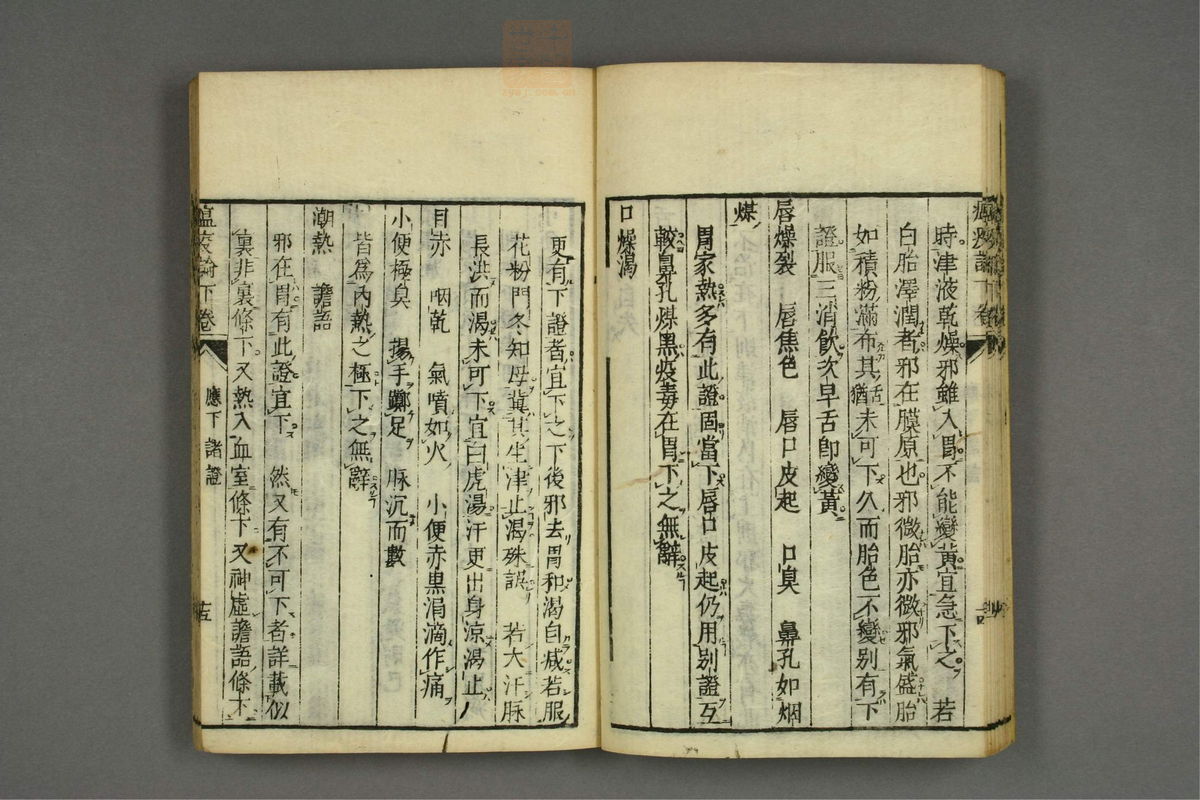 時津液乾燥邪雖入胃不能變黃宜急下之 若
白胎澤潤者邪在膜原也邪微胎亦微邪氣盛胎
如積粉滿布其舌猶未可下久而胎色不變別有下
證服三消飲次早舌卽變黃
唇燥裂 唇焦色 唇口皮起 口臭 鼻孔如烟
煤
胃家熱多有此證固當下唇口皮起仍用別證互
較鼻孔煤黑疫毒在胃下之無辭
口燥渴
更有下證者宜下之下後邪去胃和渴自减若服
花粉門冬知母冀其生津止渴殊誤 若大汗脉
長洪而渴未可下宜白虎湯汗更出身涼渴止
目赤 咽乾 氣噴如火 小便赤黒涓滴作痛
小便極臭 揚手擲足 脉沉而數
皆爲內熱之極下之無辭
潮熱 譫語
邪在胃有此證宜下 然又有不可下者詳載似
裏非裏條下 又熱入血室條下 又神虛譫語條下
瘟疫論下卷
應下諸證